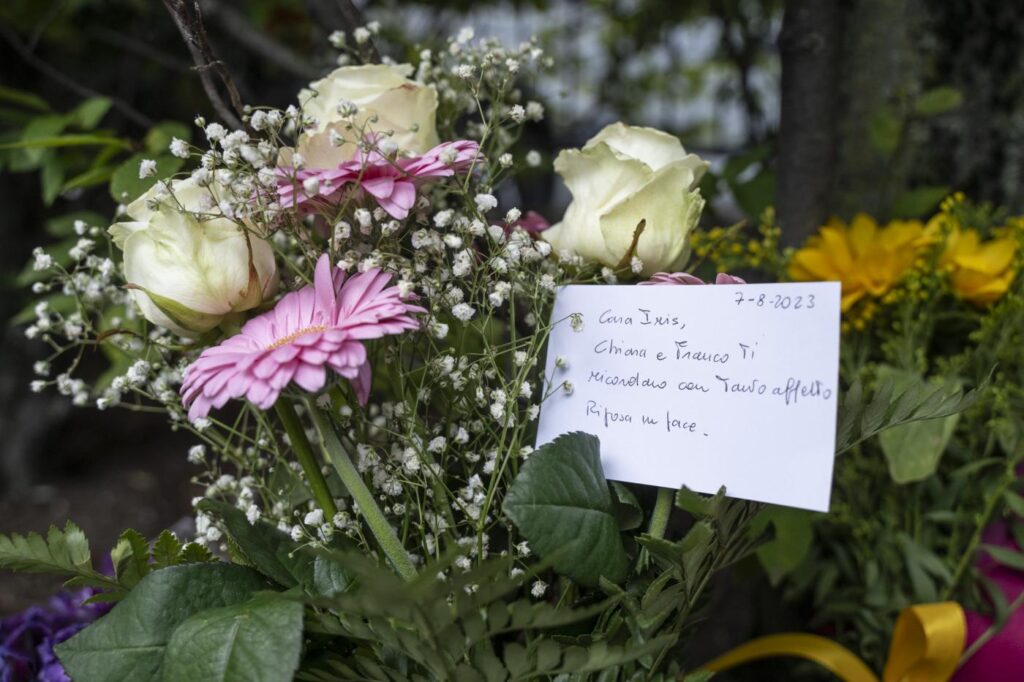 7-8-2023
Cara Iris,
Chiara e Franco Ti
ricordano con tanto affetto
Riposa in pace.